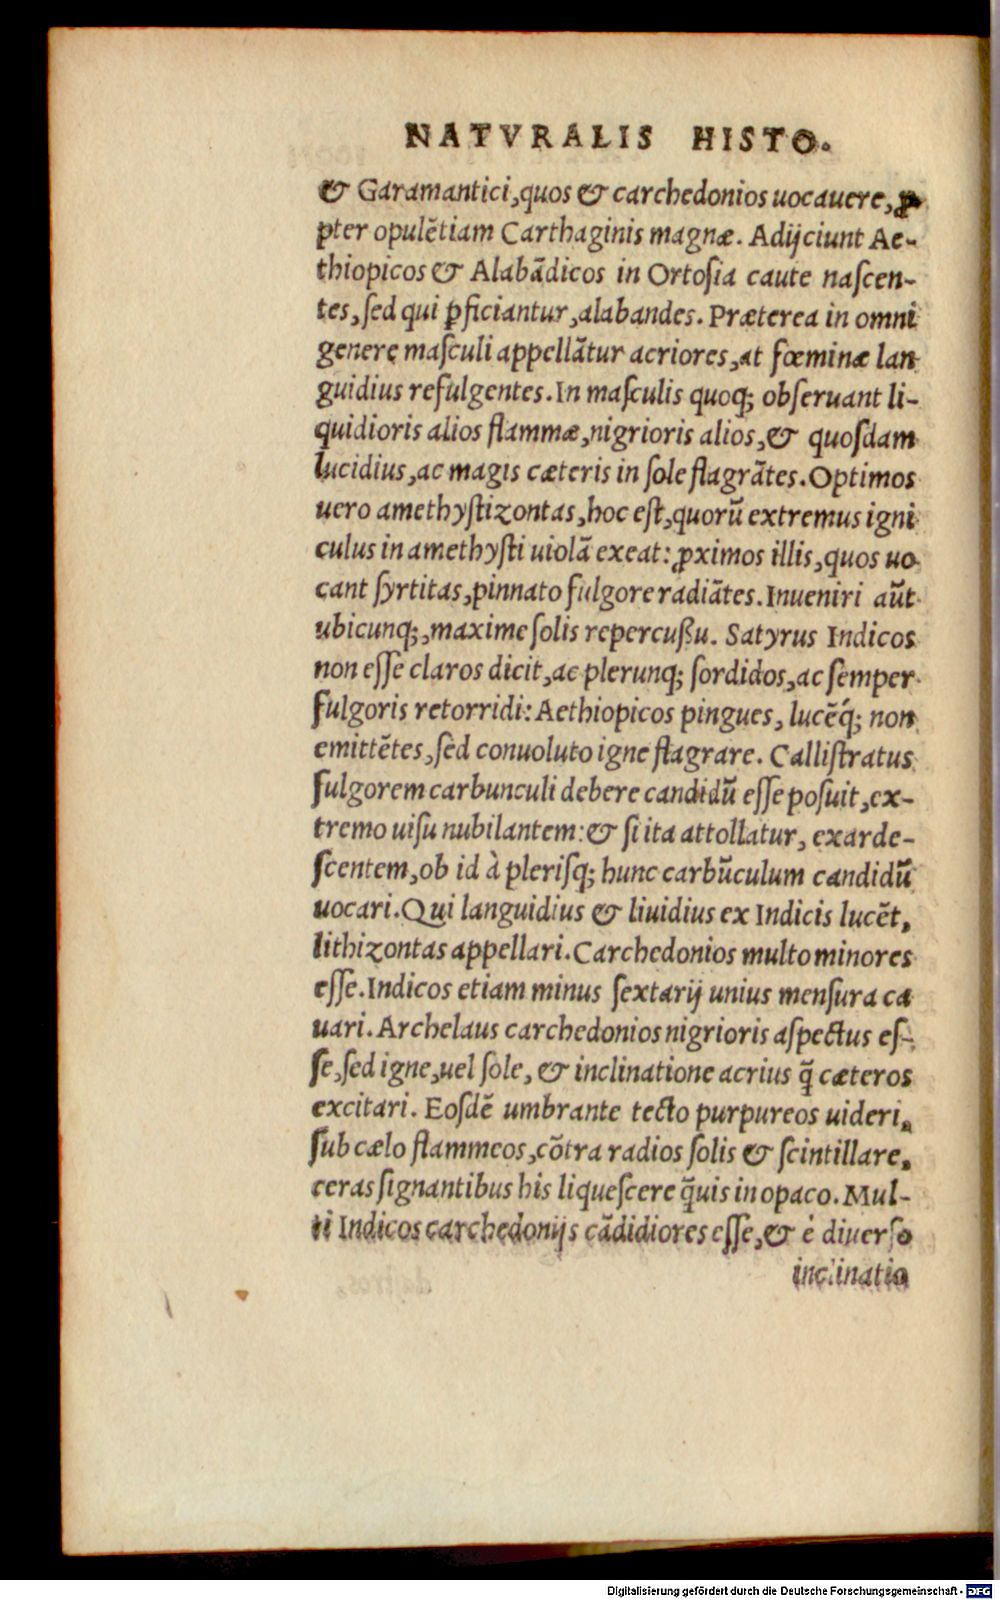 NATVRALIS HISTO.
& Garamantici, quos & carchedonios uocauere, ꝓ
pter opulētiam Carthaginis magnæ. Adijciunt Ae-
thiopicos & Alabādicos in Ortoſia caute naſcen-
tes, ſed qui ꝑficiantur, alabandes. Præterea in omni
genere maſculi appellātur acriores, at fœminæ lan
guidius refulgentes. In maſculis quoq; obſeruant li-
quidioris alios flammæ, nigrioris alios, & quoſdam
lucidius, ac magis cæteris in ſole flagrātes. Optimos
uero amethyſtizontas, hoc eſt, quorū extremus igni
culus in amethyſti uiolā exeat: ꝓximos illis, quos uo
cant ſyrtitas, pinnato fulgore radiātes. Inueniri aūt
ubicunq;, maxime ſolis repercuſſu. Satyrus Indicos
non eſſe claros dicit, ac plerunq; ſordidos, ac ſemper
fulgoris retorridi: Aethiopicos pingues, lucēq́; non
emittētes, ſed conuoluto igne flagrare. Calliſtratus
fulgorem carbunculi debere candidū eſſe poſuit, ex-
tremo uiſu nubilantem: & ſi ita attollatur, exarde-
ſcentem, ob id à pleriſq; hunc carbūculum candidū
uocari. Qui languidius & liuidius ex Indicis lucēt,
lithizontas appellari. Carchedonios multo minores
eſſe. Indicos etiam minus ſextarij unius menſura ca
uari. Archelaus carchedonios nigrioris aſpectus eſ-
ſe, ſed igne, uel ſole, & inclinatione acrius q̄ cæteros
excitari. Eoſdē umbrante tecto purpureos uideri,
ſub cælo flammeos, cōtra radios ſolis & ſcintillare,
ceras ſignantibus his liqueſcere q̄uis in opaco. Mul-
ti Indicos carchedonijs cādidiores eſſe, & è diuerſo
inclinatio
Digitalisierung gefördert durch die Deutsche Forschungsgemeinschaft - DFG